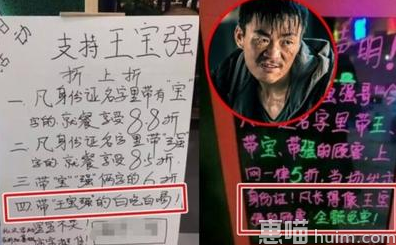 支持王宝强
折上折
一.凡身份证名字里带有“宝”
字的就餐享受8.8折
二.凡身份证名字里带“强”
字的就餐享受8.5折
三.带“宝”“强”俩字的6折
四.带“王宝强的白吃白喝!
明!
强哥,
名字里带王、
带宝、带强的顾客,上
网一律5折,
身份证!凡长得像王宝
强的顾客 全额免单!
惠喵
huimiao.com